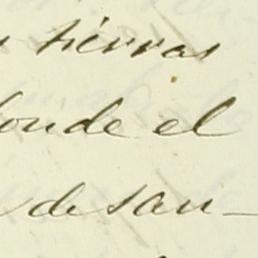 tierras
donde el
de san-